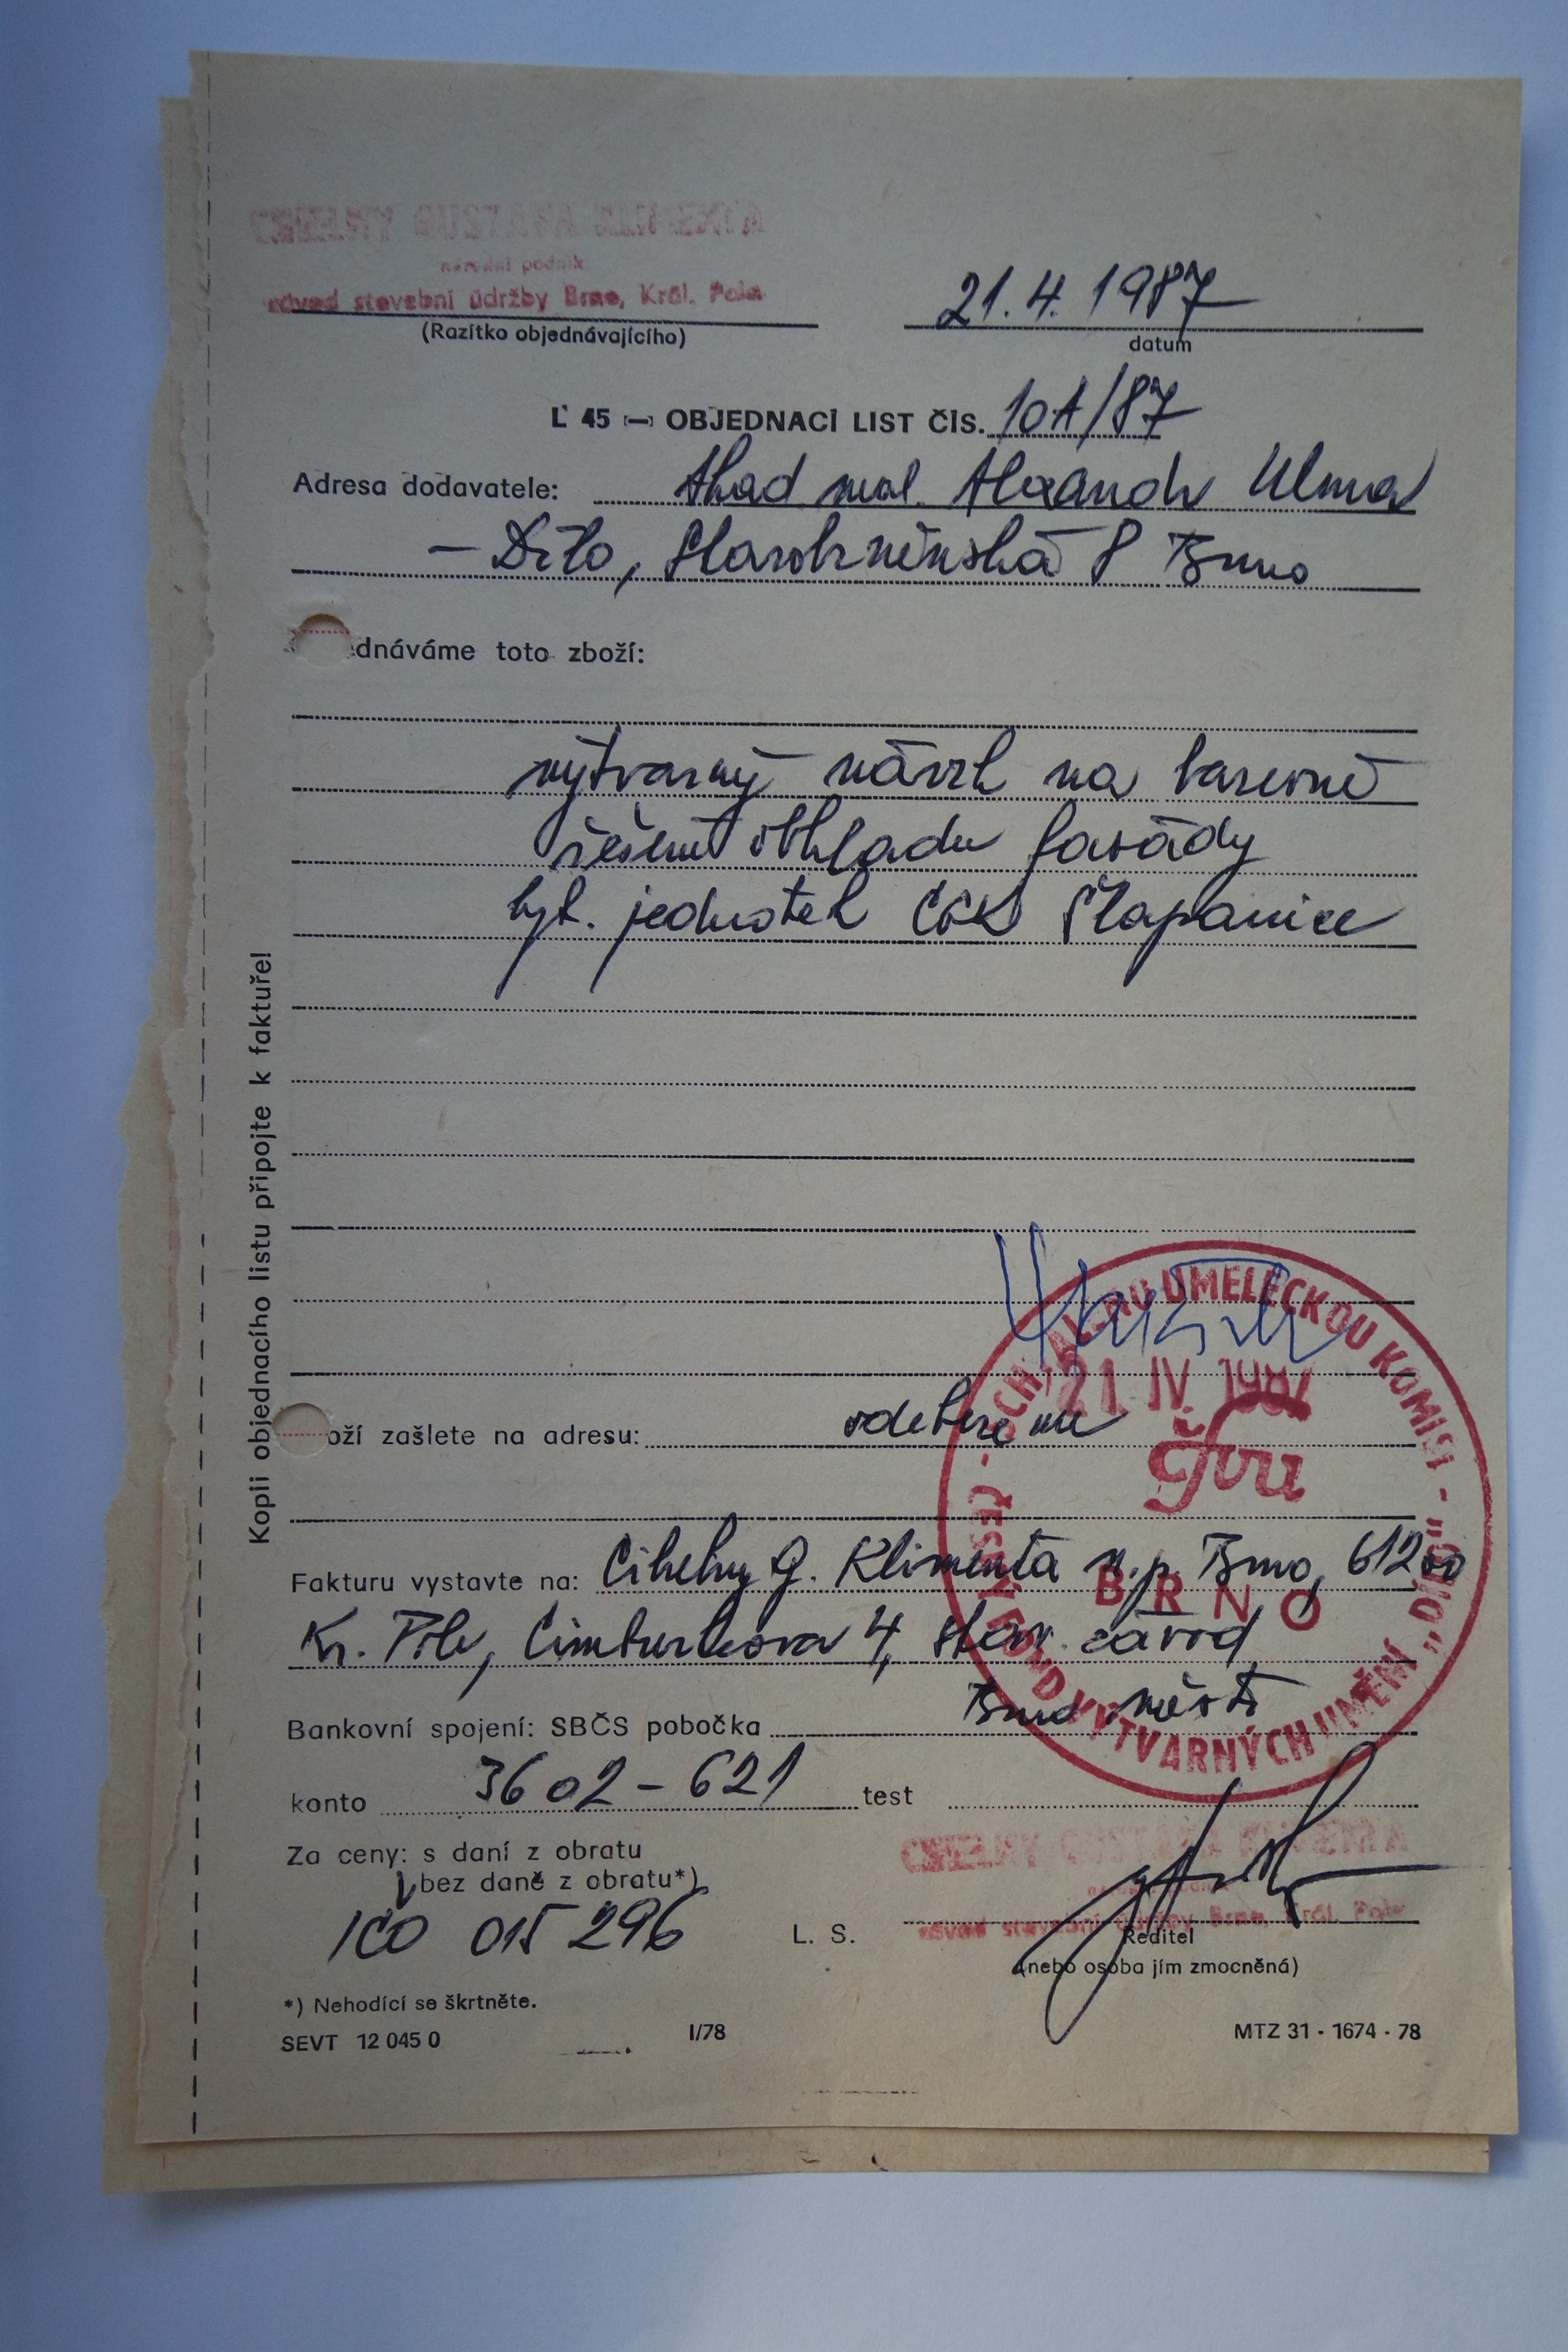 CIHELNY GUSTAVA KLIMENTA
národní podnik
závod stavební údržby Brno, Král. Pole
21. 4. 1987
(Razítko objednávajícího)
datum
L 45 — OBJEDNACÍ LIST ČÍS. 101/87
Adresa dodavatele: Akad mal. Alexandr
– Dílo, Starobrněnská 8 Brno
dnáváme toto zboží:
výtvarný návrh na barevné
řešení obkladu fasády
byt. jednotek Šlapanice
Kopii objednacího listu připojte k faktuře!
21. IV. 1987
oží zašlete na adresu: odebereme
čfvu
Fakturu vystavte na: Cihelny G. Klimenta n.p. Brno, 61200
BRNO
Kr. Pole, Cimburkova 4, stav. závod
ČESKÝ FOND VÝTVARNÝCH UMĚNÍ "DÍLO" - UMĚLECKOU KOMISI -
Bankovní spojení: SBČS pobočka Brno město
konto 3602 – 621 test
Za ceny: s daní z obratu
bez daně z obratu*)
CIHELNY GUSTAVA KLIMENTA
národní podnik
závod stavební údržby Brno, Král. Pole
IČO 015 296
L. S.
Ředitel
(nebo osoba jím zmocněná)
*) Nehodící se škrtněte.
SEVT 12 045 0
I/78
MTZ 31 - 1674 - 78